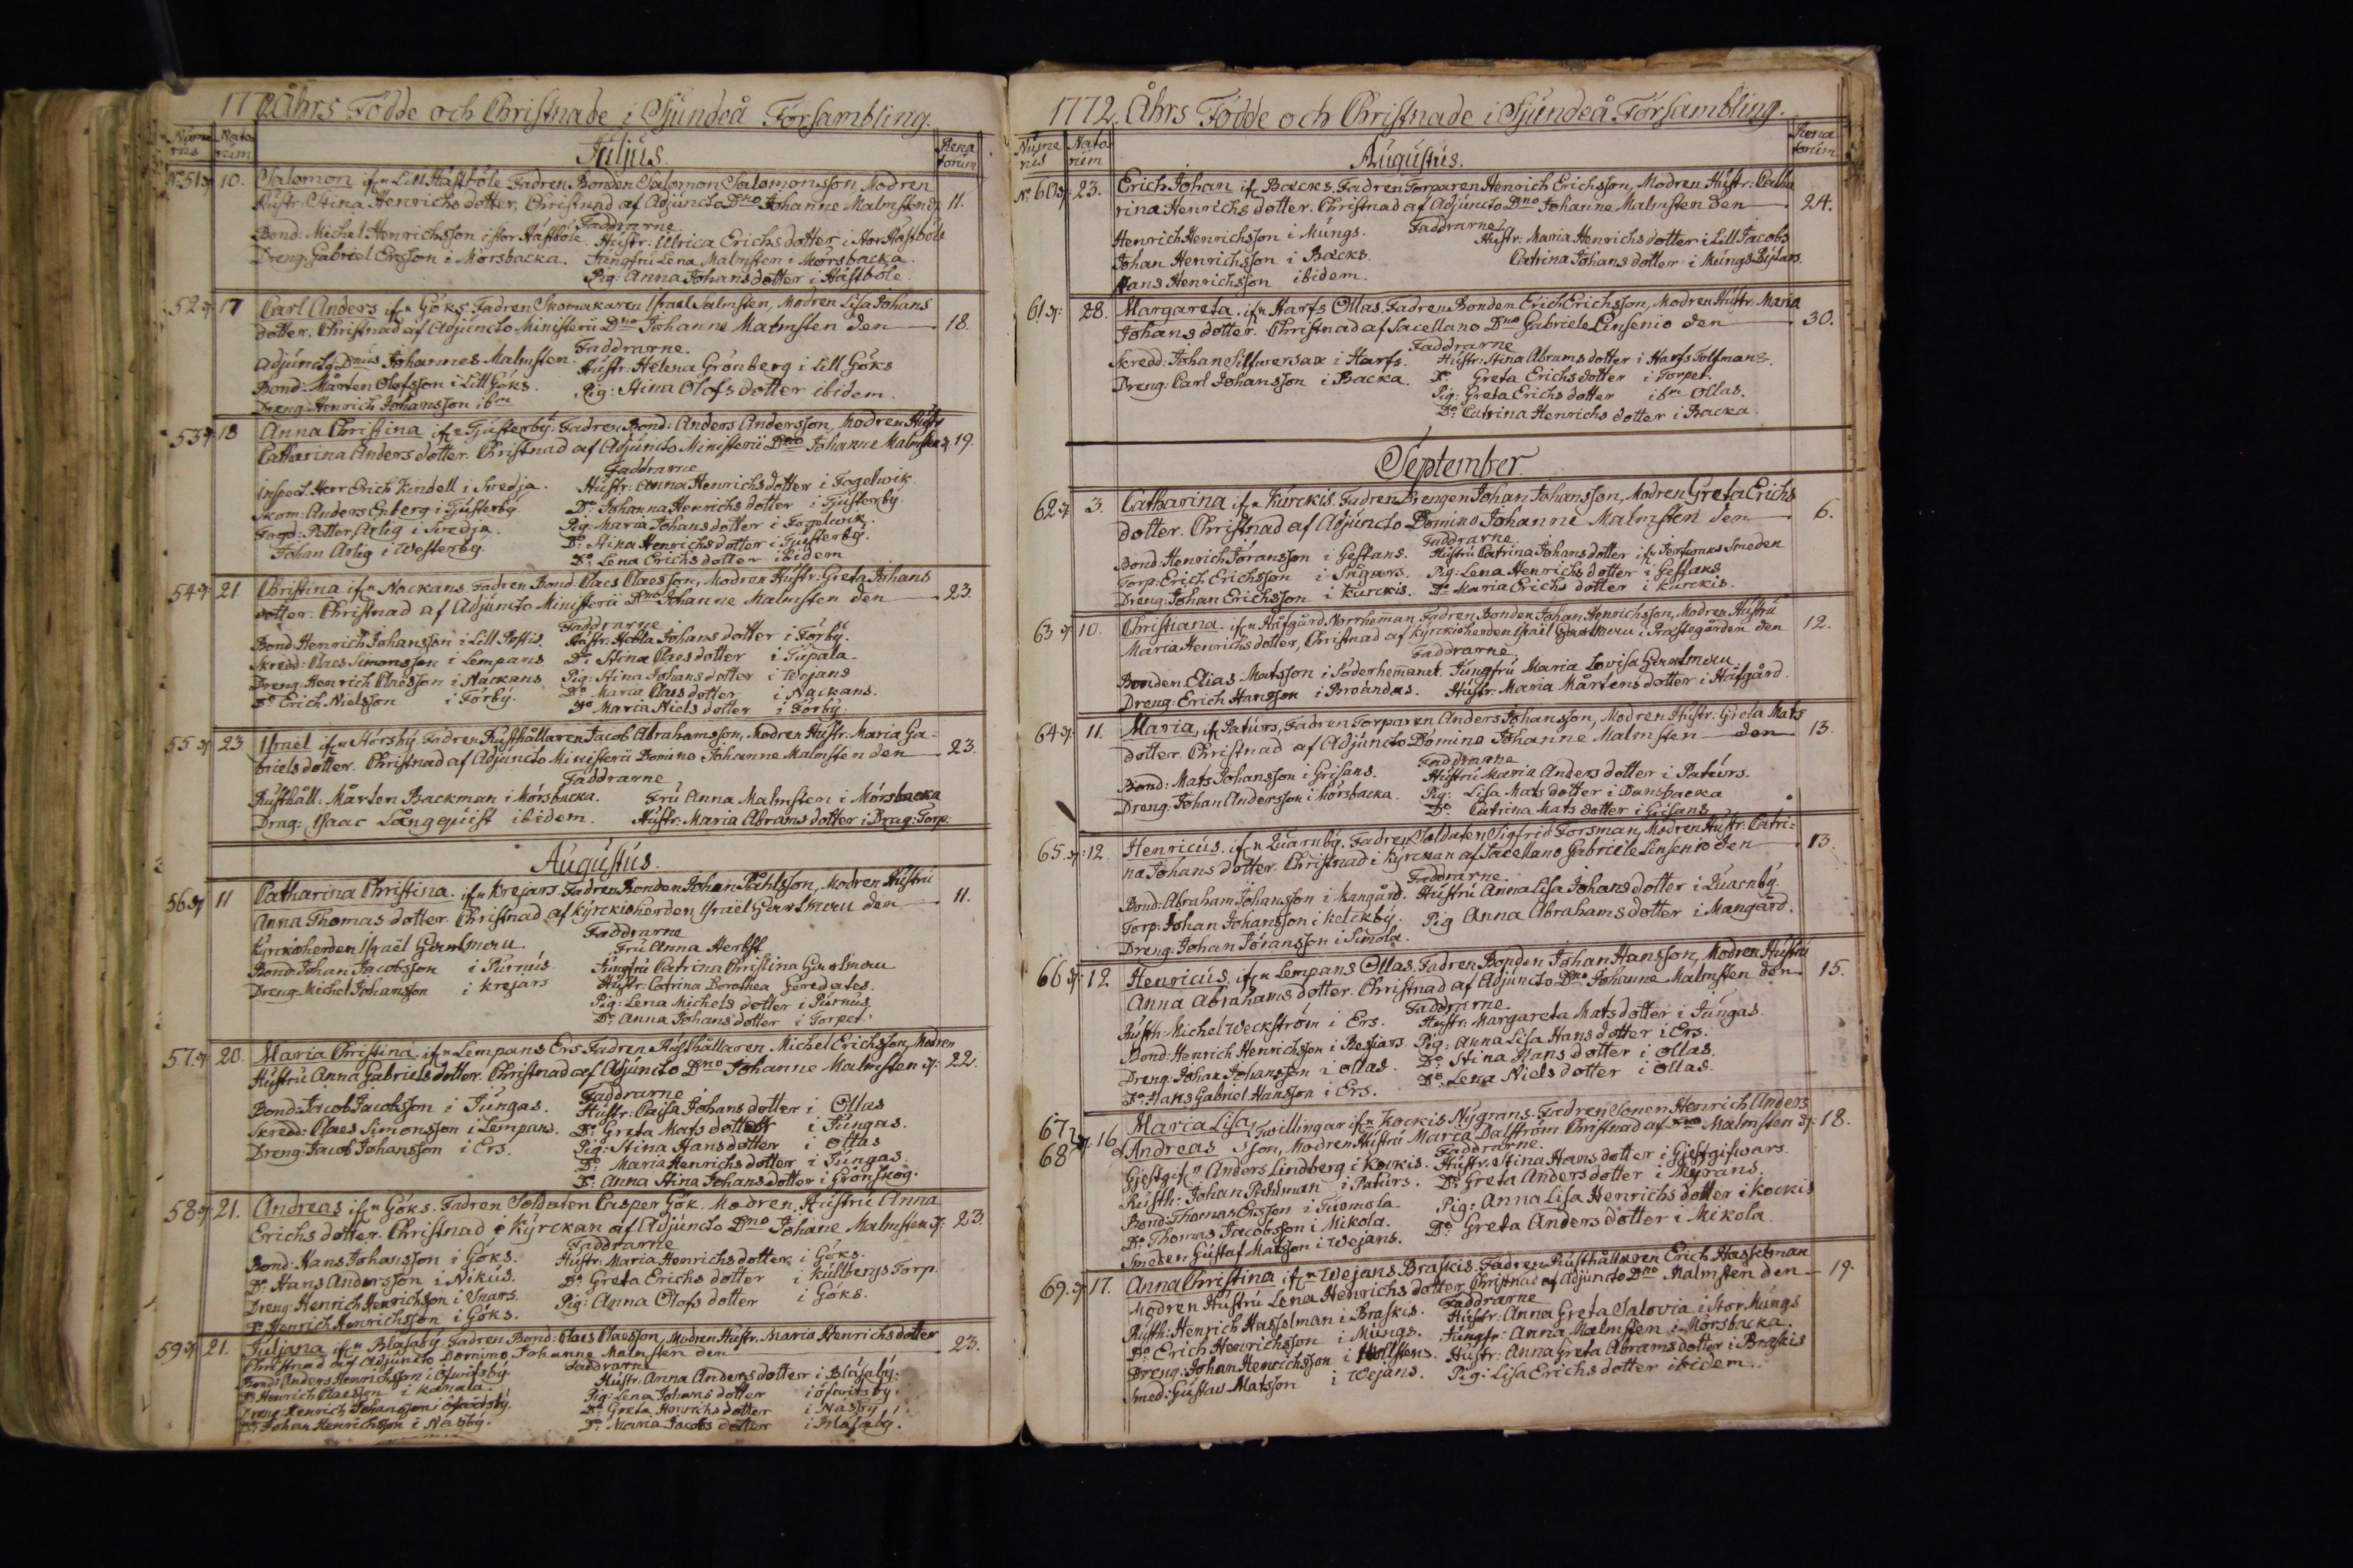 1772 Åhrs Födde och Christnade i Sjundeå Försambling.
Nume rus Nato rum Juljus. Rena torum
No 51 10. Salomon ifn Lill Hästböle Fadren Bonden Salomon Salomonsson Modren
Hustr: Stina Henrichs dotter, Christnad af Adjuncto Dno Johanne Malmsten 11.
Faddrarne
Bond: Michel Henrichsson i stor Hästböle. Hustr: Ulrica Erichs dotter i Stor Hästböle
Dreng: Gabriel Ersson i Morsbacka. Jungfru Lena Malmsten i Morsbacka.
Pig: Anna Johans dotter i Hästböle.
52 17 Carl Anders ifn Göks. Fadren Skomakaren Israel Malmsten, Modren Lisa Johans
dotter. Christnad af Adjuncto Ministerii Dno Johanne Malmsten den 18.
Faddrarne.
Adjunctg Dnus Johannes Malmsten. Hustr: Helena Grönberg i Lill Göks
Bond: Mårten Olofsson i Lill Göks. Pig: Stina Olofs dotter ibidem.
Dreng: Henrich Johansson ibm
53 18 Anna Christina ifn Tjusterby. Fadren Bond: Anders Andersson, Modren Hustr
Catharina Anders dotter. Christnad af Adjuncto Ministerii Dno Johanne Malmsten 19.
Faddrarne
Inspect. Herr Erich Kindell i Svedja. Hustr: Anna Henrichs dotter i Fogelwik.
Skom: Anders Enberg i Tjusterby. Do Johanna Henrichs dotter i Tjusterby.
Fogd: Petter Arlig i Svedja. Pig: Maria Johans dotter i Fogelwik.
Johan Arlig i Westerby. Do Stina Henrichs dotter i Tjusterby.
Do Lena Erichs dotter ibidem
54 21. Christina ifn Nackans. Fadren Bond. Claes Claesson, Modren Hustr: Greta Johans
dotter. Christnad af Adjuncto Ministerii Dno Johanne Malmsten den 23.
Faddrarne
Bond Henrich Johansson i Lill Postis. Hustr: Hebla Johans dotter i Förby.
Skredd: Claes Simonsson i Lempans Do Stina Claes dotter i Tupala.
Dreng: Henrich Claesson i Nackans Pig: Stina Johans dotter i Wejans
Do Erich Nielsson i Förby. Do Maria Claes dotter i Nackans.
Do Maria Niels dotter i Förby.
55 23. Israël ifn Störsby. Fadren Rusthållaren Jacob Abrahamsson, Modren Hustr: Maria Ga-
briels dotter. Christnad af Adjuncto Ministerii Domino Johanne Malmsten den 23.
Faddrarne
Rusthåll: Mårten Backman i Mörsbacka. Fru Anna Malmsten i Mörsbacka
Drag: Isaac Långquist ibidem. Hustr: Maria Abrams dotter i Drag: Torp.
Augustus.
56 11 Catharina Christina. ifn Krejars. Fadren Bonden Johan Påhlsson, Modren Hustru
Anna Thomas dotter. Christnad af Kyrckioherden Israël den 11.
Faddrarne
Kyrckioherden Israël Fru Anna Herbst
Bond: Johan Jacobsson i Purnus. Jungfru Catrina Christina
Dreng Michel Johansson i Krejars Hustr: Catrina Dorothea
Pig: Lena Michels dotter i Purnus.
Do: Anna Johans dotter i Torpet.
57. 20. Maria Christina. ifn Lempans Ers Fadren Rusthållaren Michel Erichsson, Modren
Hustru Anna Gabriels dotter. Christnad af Adjuncto Dno Johanne Malmsten 22.
Faddrarne
Bond: Jacob Jacobsson i Jungas. Hustr: Caisa Johans dotter i Ollas
Skredd: Claes Simonsson i Lempans. Do Greta Mats dotter i Jungas.
Dreng: Jacob Johansson i Ers. Pig: Stina Hans dotter i Ollas
Do: Maria Henrichs dotter i Jungas.
Do: Anna Stina Johans dotter i Grönskog.
58 21. Andreas ifn Göks. Fadren Soldaten Casper Gök. Modren Hustru Anna
Erichs dotter. Christnad i Kyrckan af Adjuncto Dno Johane Malmsten 23.
Faddrarne
Bond: Hans Johansson i Göks. Hustr: Maria Henrichs dotter i Göks.
Do Hans Andersson i Nikus. Do Greta Erichs dotter i Kullbergs Torp.
Dreng: Henrich Henrichsson i Snars. Pig: Anna Olofs dotter i Göks.
Do Henrich Henrichsson i Göks.
59 21. Juljana ifn Blåsaby. Fadren Bond: Claes Claesson, Modren Hustr: Maria Henrichs dotter
Christnad af Adjuncto Domino Johanne Malmsten den 23.
Faddrarne
Bond: Anders Henrichsson i Ofwitsby. Hustr: Anna Anders dotter i Blåsaby.
Do Henrich Claesson i Kanala. Pig: Lena Johans dotter i ofwitsby.
Dreng: Henrich Johansson Do Greta Henrichs dotter i Näsby
Do Johan Henrichsson i Näsby. Do Maria Jacobs dotter i Blåsaby.
1772. Åhrs Födde och Christnade i Sjundeå Försambling.
Nume rus Nato rum Augustus. Rena torum
No 60 23. Erich Johan if Backs. Fadren Torparen Henrich Erichsson, Modren Hustr: Catha
rina Henrichs dotter. Christnad af Adjuncto Dno Johanne Malmsten den 24.
Faddrarne
Henrich Henrichsson i Mungs. Hustr: Maria Henrichs dotter i Lill Jacobs
Johan Henrichsson i Backs. Catrina Johans dotter i Mungs
Hans Henrichsson ibidem.
61 28. Margareta. ifn Harfs Ollas. Fadren Bonden Erich Erichsson, Modren Hustr: Maria
Johans dotter. Christnad af Sacellano Dno Gabriele Linsenio den 30.
Faddrarne
Skredd: Johan Sillwersax i Harfs. Hustr: Stina Abrams dotter i Harfs Tolfmans.
Dreng: Carl Johansson i Backa. Do Greta Erichs dotter i Torpet.
Pig: Greta Erichs dotter ibm Ollas.
Do: Catrina Henrichs dotter i Backa.
September.
62 3. Catharina ifn Kurckis. Fadren Drengen Johan Johansson, Modren Greta Erichs
dotter. Christnad af Adjuncto Domino Johanne Malmsten den 6.
Faddrarne
Bond: Henrich Jöransson i Gestans. Hustru Catrina Johans dotter ifn Smeden
Torp: Erich Erichsson i Sågars. Pig: Lena Henrichs dotter i Gestans
Dreng: Johan Erichsson i Kurckis. Do Maria Erichs dotter i Kurckis.
63 10. Christiana. ifn Håfgård Norrheman Fadren Bonden Johan Henrichsson, Modren Hustru
Maria Henrichs dotter, Christnad af Kyrckioherden Israël i Prästegården den 12.
Faddrarne
Bonden Elias Matsson i Söderhemanet. Jungfru Maria Lovisa
Dreng: Erich Hansson i Broändas. Hustr: Maria Mårtens dotter i Håfgård.
64 11. Maria, if Paturs, Fadren Torparen Anders Johansson, Modren Hustr: Greta Mats
dotter. Christnad af Adjuncto Domino Johanne Malmsten den 13.
Faddrarne
Bond: Mats Johansson i Grisans. Hustru Maria Anders dotter i Paturs.
Dreng: Johan Andersson i Mörsbacka. Pig: Lisa Mats dotter i Dansbacka
Do: Catrina Mats dotter i Gisans
65. 12 Henricus. ifn Quarnby. Fadren Soldaten Sigfrid Forsman, Modren Hustr: Catri-
na Johans dotter. Christnad i Kyrckan af Sacellano Gabriele Linsenio den 13.
Faddrarne.
Bond: Abraham Johansson i Mangård. Hustru Anna Lisa Johans dotter i Quarnby.
Torp: Johan Johansson i Kelckby. Pig Anna Abrahams dotter i Mangård.
Dreng: Johan Jöransson i Simola.
66 12 Henricus. ifn Lempans Ollas. Fadren Bonden Johan Hansson, Modren Hustru
Anna Abrahams dotter. Christnad af Adjuncto Dno Johanne Malmsten den 15.
Faddrarne.
Rusth: Michel Weckström i Ers. Hustr: Margareta Mats dotter i Jungas.
Bond: Henrich Henrichsson i Bessars. Pig: Anna Lisa Hans dotter i Ers.
Dreng: Johan Johansson i ollas. Do: Stina Hans dotter i ollas.
Do Hans Gabriel Hansson i Ers. Do: Lena Niels dotter i ollas.
67 68 16 Maria Lisa, & Andreas Twillingar ifn Kockis Nygrans. Fadren Sonen Henrich Anders
sson, Modren Hustru Maria Dalström. Christnad af Dno Malmsten 18.
Faddrarne.
Gjestgifn Anders Lindberg i Kockis. Hustr: Stina Hans dotter i Gjestgifwars.
Rusth: Johan Påhlman i Paturs. Do Greta Anders dotter i Nygrans.
Bond: Thomas Ersson i Tuomola Pig: Anna Lisa Henrichs dotter i Kockis
Do: Thomas Jacobsson i Mikola. Do Greta Anders dotter i Mikola
Smeden Gustaf Matsson i Wejans.
69. 17. Anna Christina ifn Wejans Braskis. Fadren Rusthållaren Erich Hasselman
Modren Hustru Lena Henrichs dotter Christnad af Adjuncto Dno Malmsten den 19.
Faddrarne
Rusth: Henrich Hasselman i Braskis. Hustr: Anna Greta Salovia i Stor Mungs
Do Erich Henrichsson i Mungs. Jungfr: Anna Malmsten i Mörsbacka.
Dreng: Johan Henrichsson i Hollstens. Hustr: Anna Greta Abrams dotter i Braskis
Smed: Gustav Matsson i Wejans. Pig: Lisa Erichs dotter ibidem.